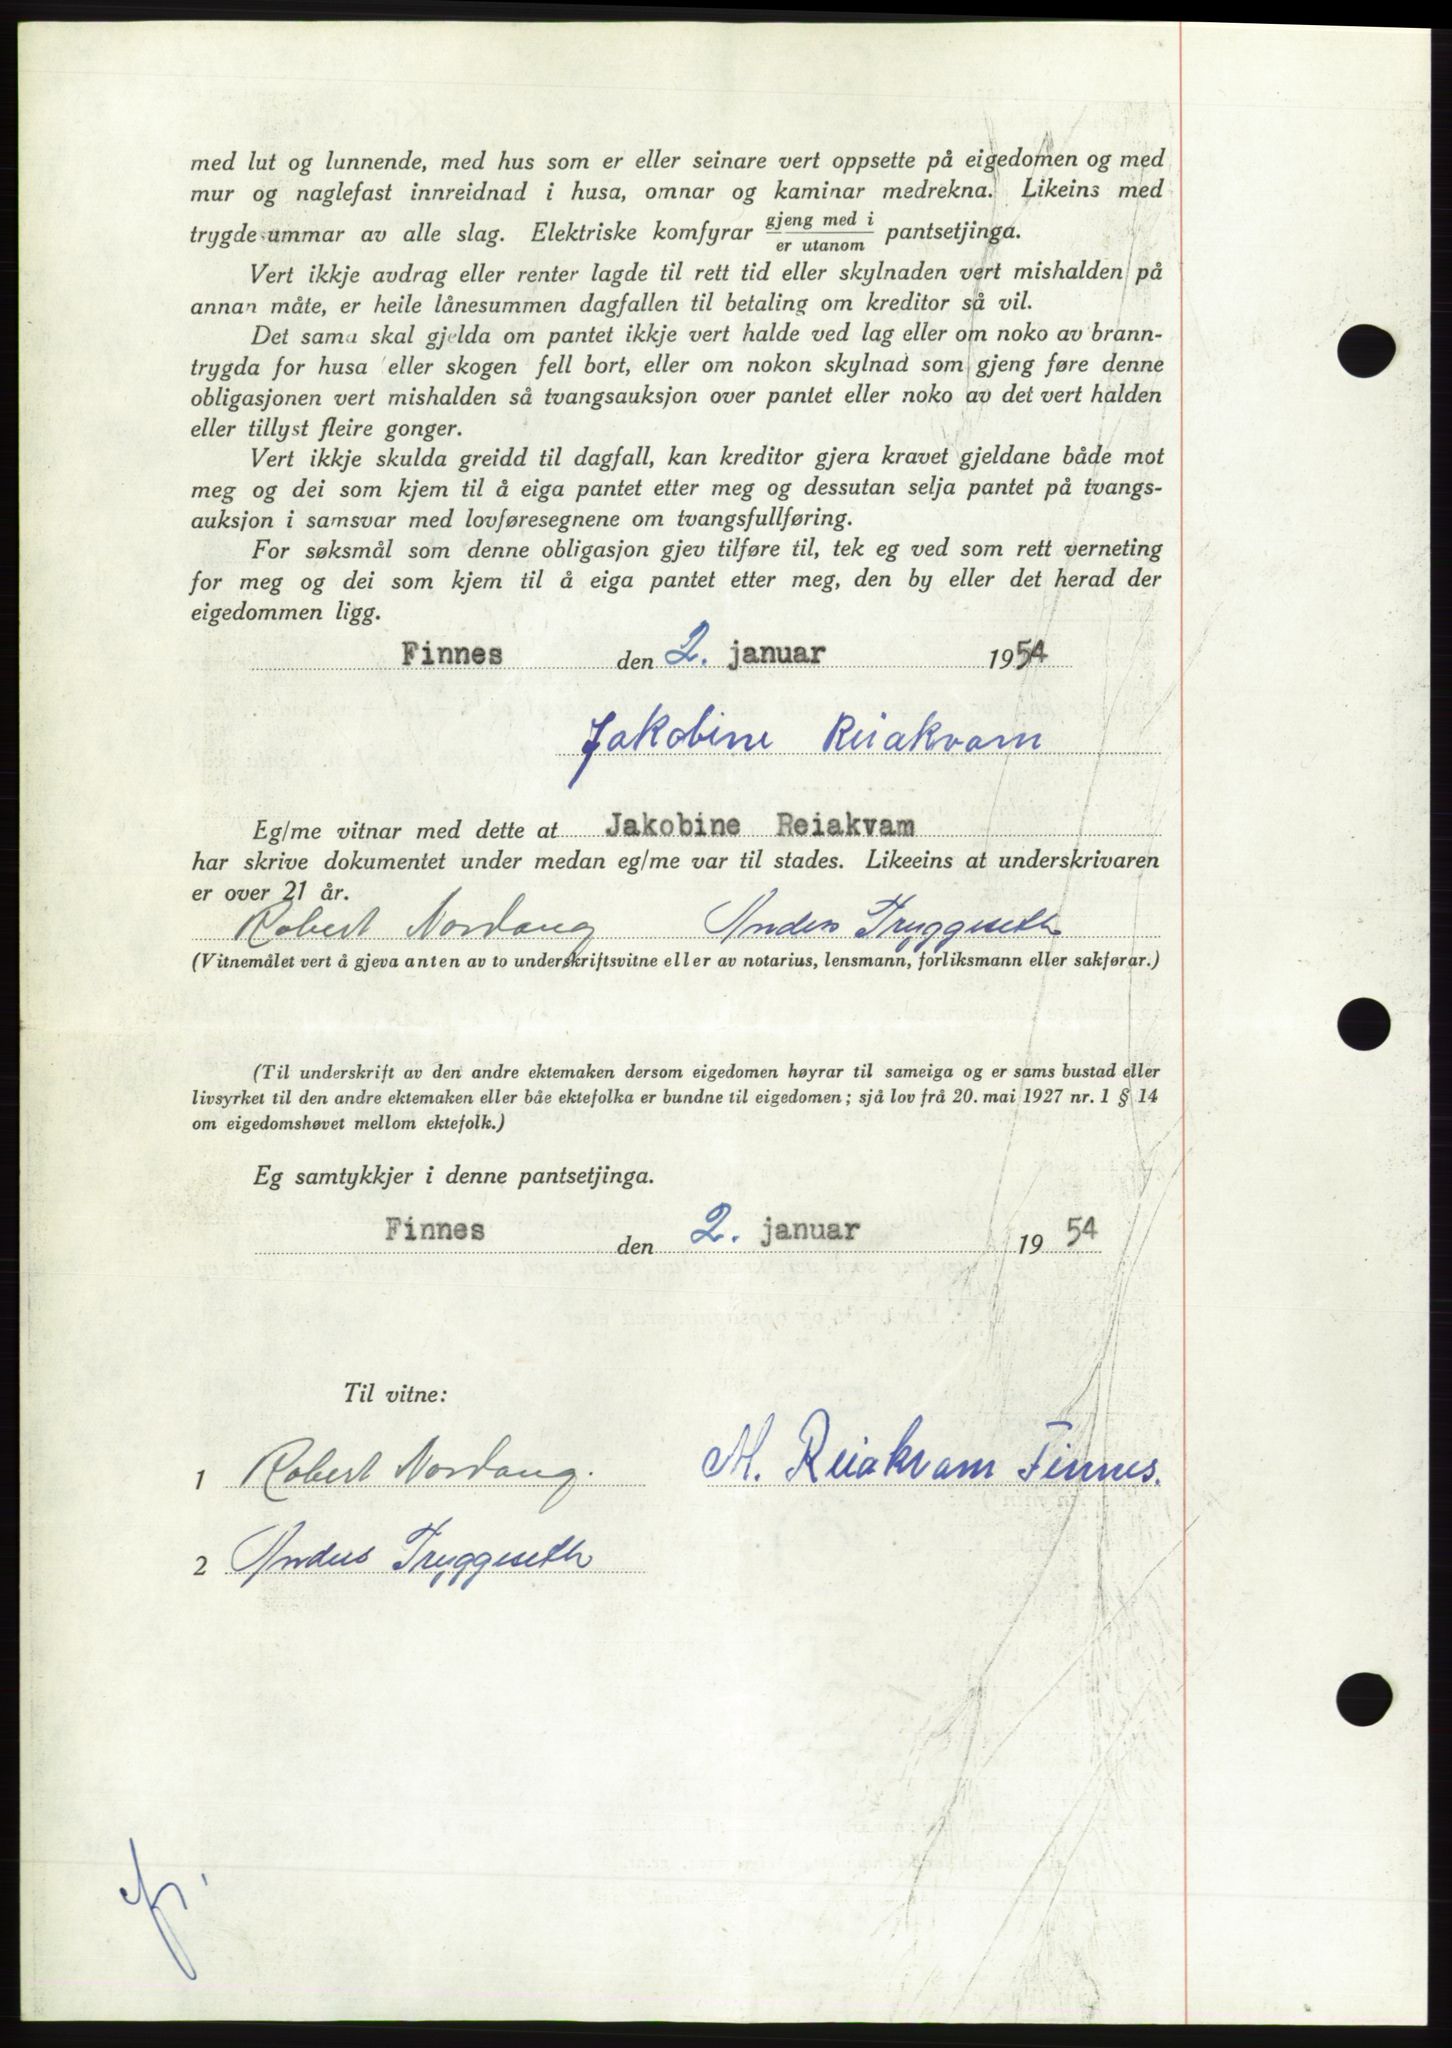 med lut og lunnende, med hus som er eller seinare vert oppsette på eigedomen og med
mur og naglefast innreidnad i husa, omnar og kaminar medrekna. Likeins med
trygde ummar av alle slag. Elektriske komfyrar gjeng med i / er utanom pantsetjinga.
Vert ikkje avdrag eller renter lagde til rett tid eller skylnaden vert mishalden på
annan måte, er heile lånesummen dagfallen til betaling om kreditor så vil.
Det sama skal gjelda om pantet ikkje vert halde ved lag eller om noko av brann-
trygda for husa eller skogen fell bort, eller om nokon skylnad som gjeng føre denne
obligasjonen vert mishalden så tvangsauksjon over pantet eller noko av det vert halden
eller tillyst fleire gonger.
Vert ikkje skulda greidd til dagfall, kan kreditor gjera kravet gjeldane både mot
meg og dei som kjem til å eiga pantet etter meg og dessutan selja pantet på tvangs-
auksjon i samsvar med lovføresegnene om tvangsfullføring.
For søksmål som denne obligasjon gjev tilføre til, tek eg ved som rett verneting
for meg og dei som kjem til å eiga pantet etter meg, den by eller det herad der
eigedommen ligg.
Finnes den 2. januar 1954
Jakobine Reiakvam
Eg/me vitnar med dette at Jakobine Reiakvam
har skrive dokumentet under medan eg/me var til stades. Likeeins at underskrivaren
er over 21 år.
Robert Nordang Anders Tryggeseth
(Vitnemålet vert å gjeva anten av to underskriftsvitne eller av notarius, lensmann, forliksmann eller sakførar.)
(Til underskrift av den andre ektemaken dersom eigedomen høyrar til sameiga og er sams bustad eller
livsyrket til den andre ektemaken eller båe ektefolka er bundne til eigedomen; sjå lov frå 20. mai 1927 nr. 1 § 14
om eigedomshøvet mellom ektefolk.)
Eg samtykkjer i denne pantsetjinga.
Finnes den 2. januar 19 54
Til vitne:
1 Robert Nordang. M. Reiakvam Finnes.
2 Anders Tryggeseth